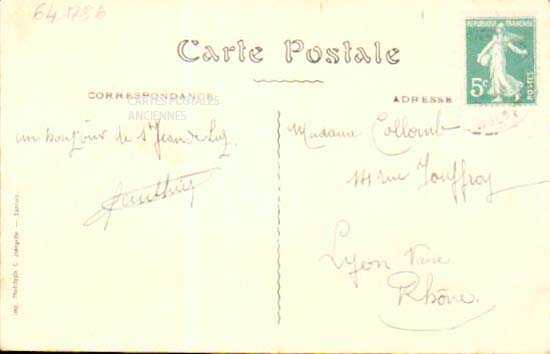 641786
Carte Postale
RÉPUBLIQUE FRANÇAISE
5c
POSTES
CORRESPONDANCE
CARTES POSTALES
ANCIENNES
un bonjour de St Jean de Luz
ADRESSE
Madame Collomb
14 rue Jouffroy
Lyon Vaise
Rhône
Imp. Phototypie